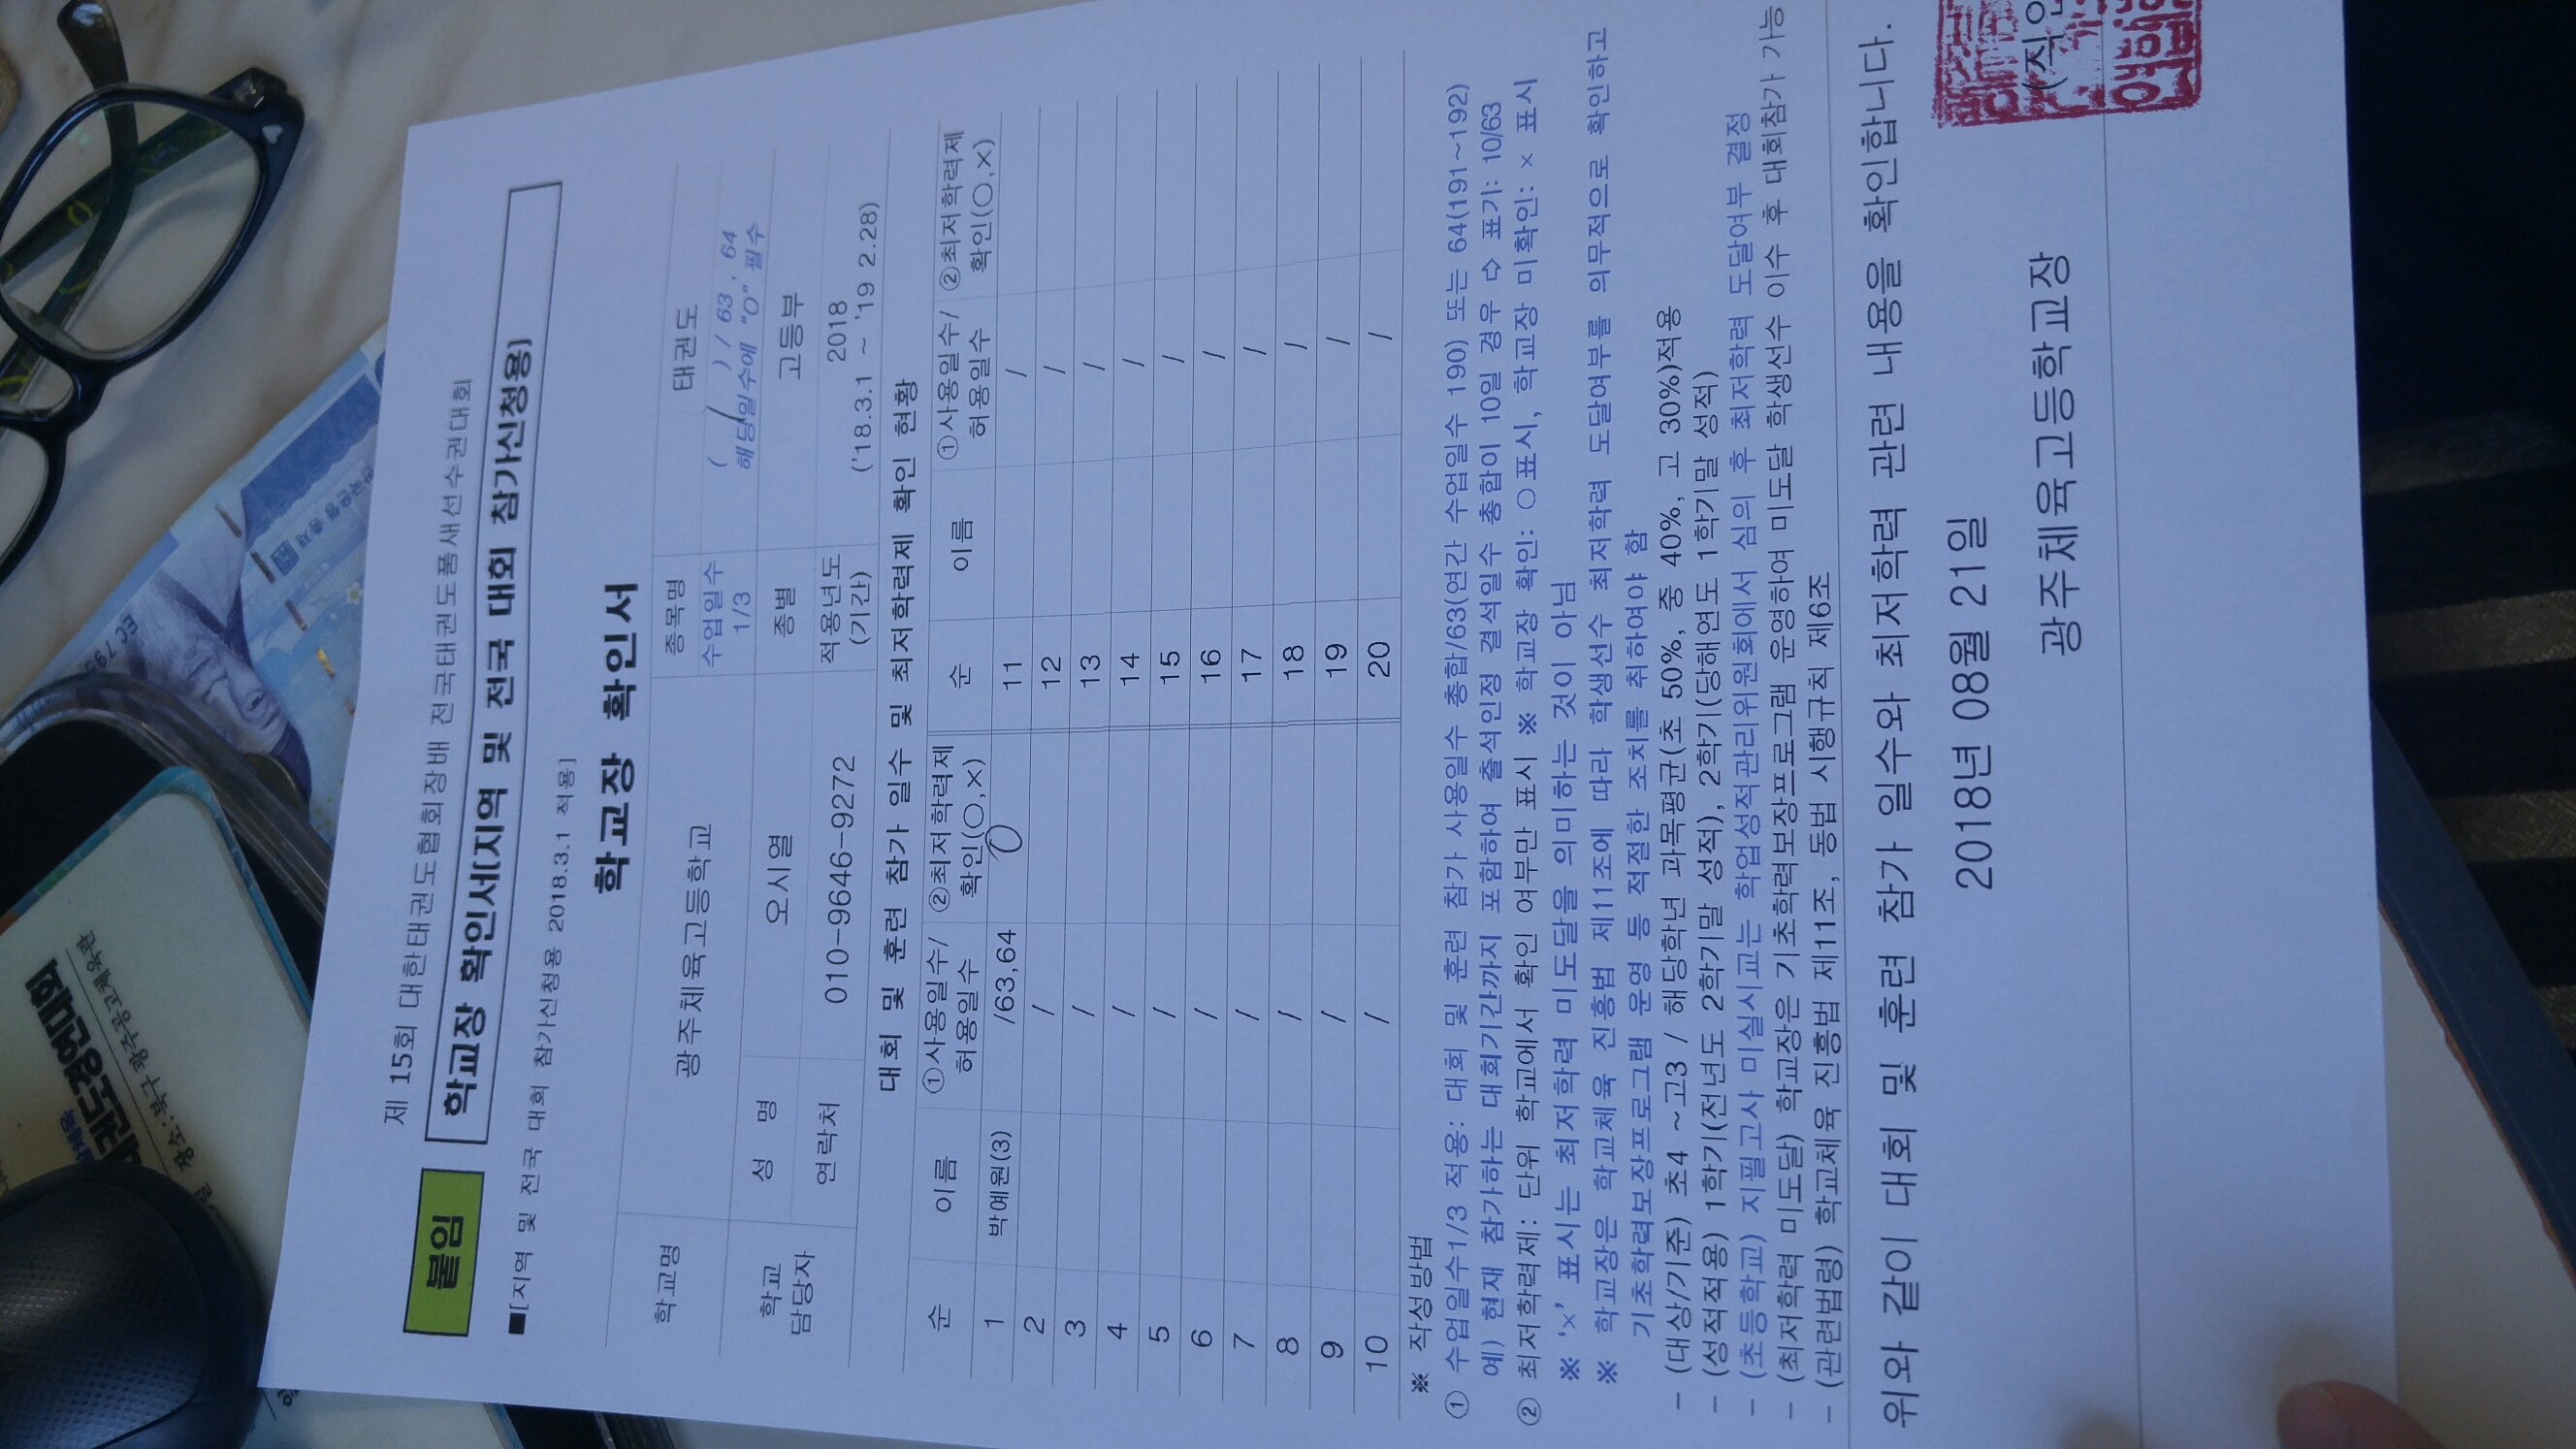 제 15회 대한태권도협회장배 전국태권도품새선수권대회
붙임
학교장 확인서(지역 및 전국 대회 참가신청용)
■[지역 및 전국 대회 참가신청용 2018.3.1 적용]
학교장 확인서
학교명 광주체육고등학교 종목명 태권도
수업일수 1/3 ( ) / 63 , 64
해당일수에 "O" 필수
학교 담당자 성 명 오시열 종별 고등부
연락처 010-9646-9272 적용년도 (기간) 2018
('18.3.1 ~ '19 2.28)
대회 및 훈련 참가 일수 및 최저학력제 확인 현황
순 이름 ①사용일수/허용일수 ②최저학력제 확인(○,×) 순 이름 ①사용일수/허용일수 ②최저학력제 확인(○,×)
1 박예원(3) /63,64 O 11 /
2 / 12 /
3 / 13 /
4 / 14 /
5 / 15 /
6 / 16 /
7 / 17 /
8 / 18 /
9 / 19 /
10 / 20 /
※ 작성방법
① 수업일수1/3 적용: 대회 및 훈련 참가 사용일수 총합/63(연간 수업일수 190) 또는 64(191~192)
예) 현재 참가하는 대회기간까지 포함하여 출석인정 결석일수 총합이 10일 경우 ⇨ 표기: 10/63
② 최저학력제: 단위 학교에서 확인 여부만 표시 ※ 학교장 확인: ○표시, 학교장 미확인: × 표시
※ '×' 표시는 최저학력 미도달을 의미하는 것이 아님
※ 학교장은 학교체육 진흥법 제11조에 따라 학생선수 최저학력 도달여부를 의무적으로 확인하고
기초학력보장프로그램 운영 등 적절한 조치를 취하여야 함
- (대상/기준) 초4 ~고3 / 해당학년 과목평균(초 50%, 중 40%, 고 30%)적용
- (성적적용) 1학기(전년도 2학기말 성적), 2학기(당해연도 1학기말 성적)
- (초등학교) 지필고사 미실시교는 학업성적관리위원회에서 심의 후 최저학력 도달여부 결정
- (최저학력 미도달) 학교장은 기초학력보장프로그램 운영하여 미도달 학생선수 이수 후 대회참가 가능
- (관련법령) 학교체육 진흥법 제11조, 동법 시행규칙 제6조
위와 같이 대회 및 훈련 참가 일수와 최저학력 관련 내용을 확인합니다.
2018년 08월 21일
광주체육고등학교장
(직인